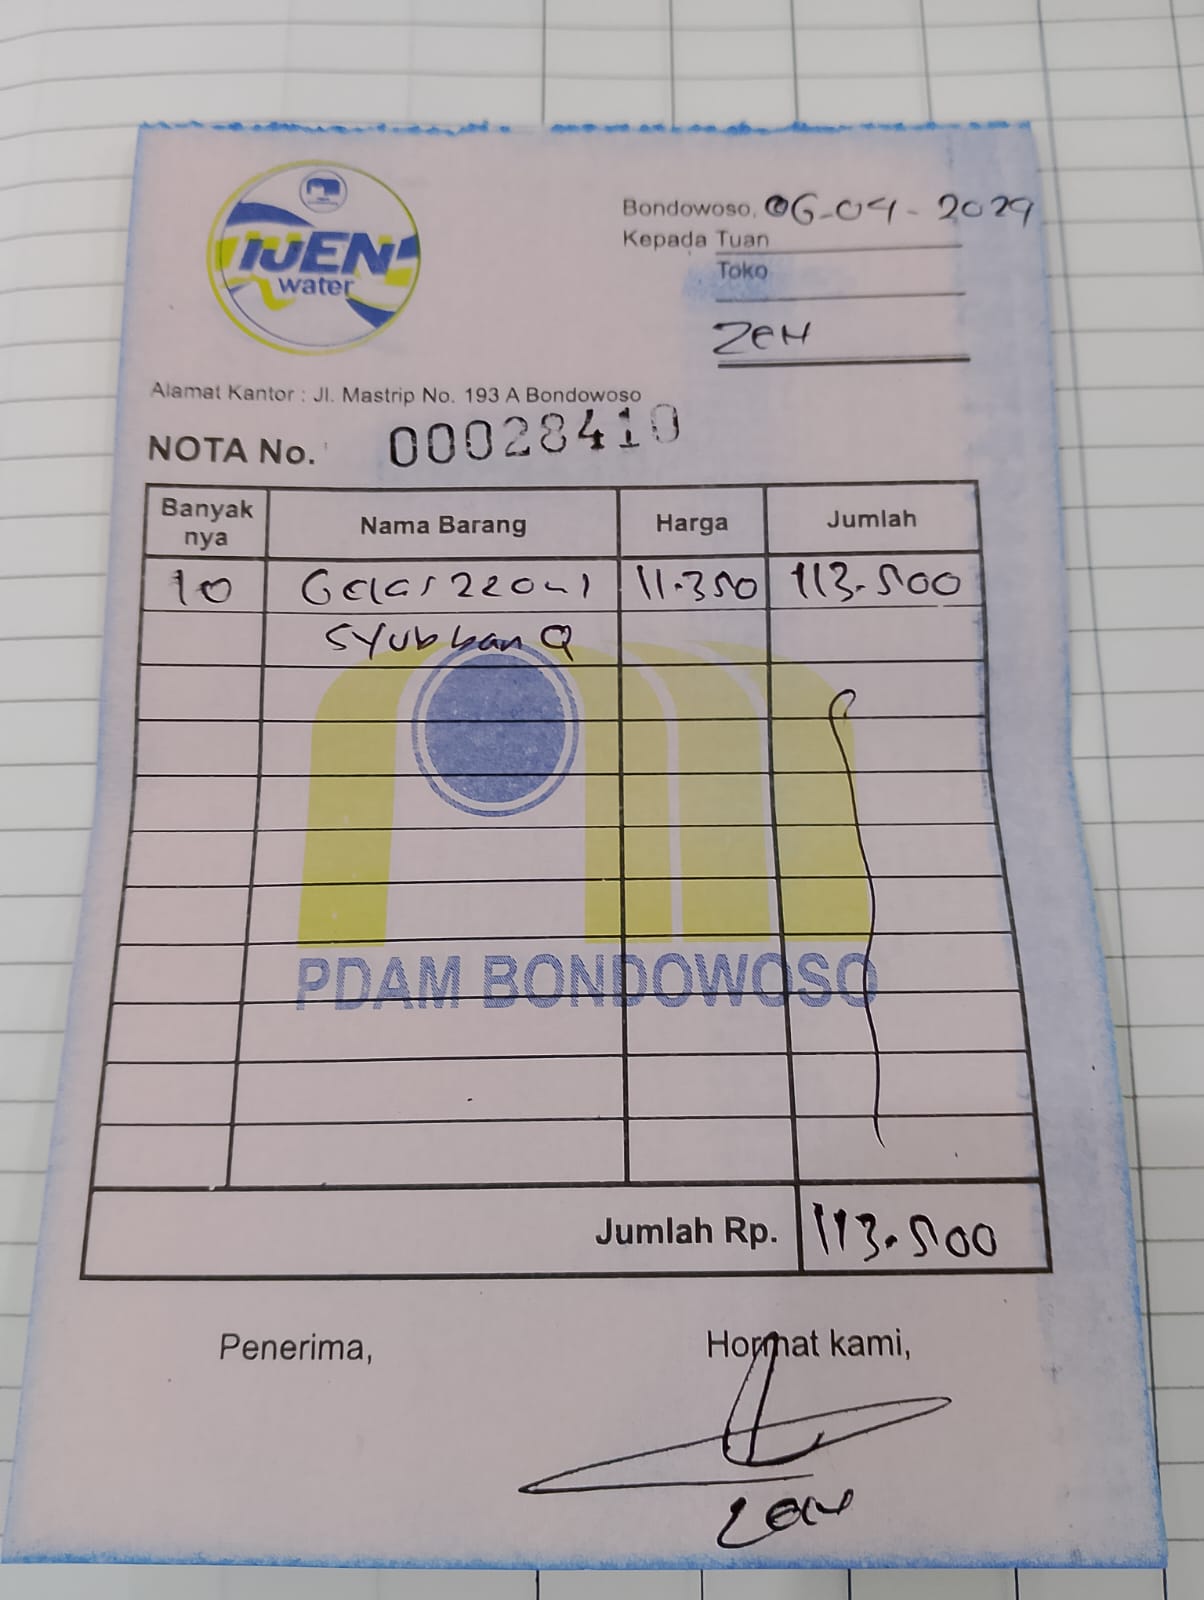 IJEN
water
Bondowoso, 06-04-2029
Kepada Tuan
Toko
ZEN
Alamat Kantor : Jl. Mastrip No. 193 A Bondowoso
NOTA No. 00028410
Banyak nya Nama Barang Harga Jumlah
10 Gelas 220ml 11.350 113.500
Syubban Q
PDAM BONDOWOSO
Jumlah Rp. 113.500
Penerima, Hormat kami,